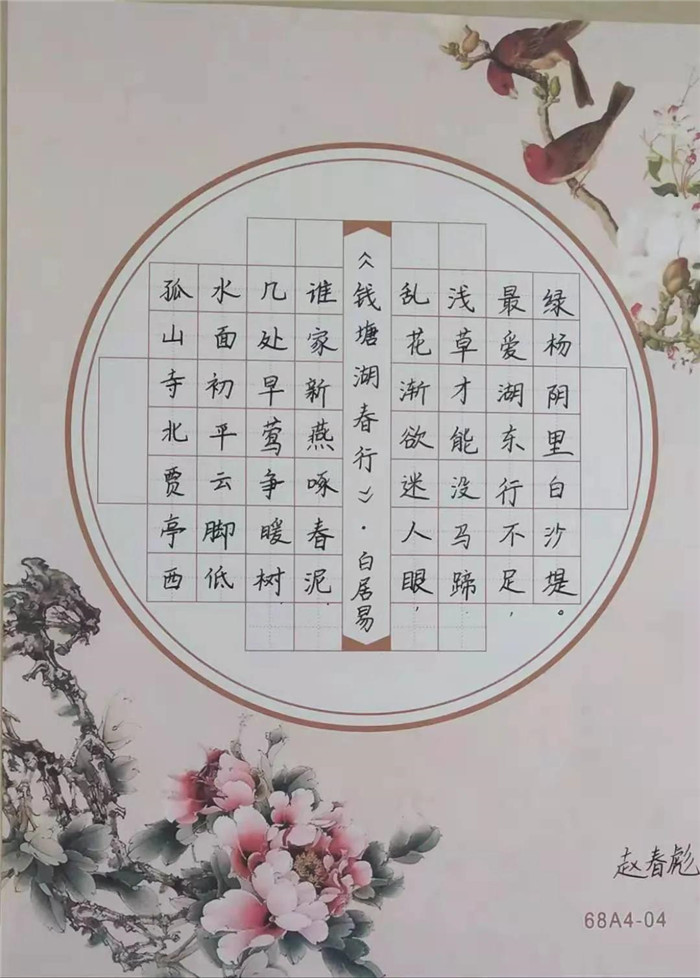 孤山寺北贾亭西
水面初平云脚低
几处早莺争暖树.
谁家新燕啄春泥.
《钱塘湖春行》·白居易
乱花渐欲迷人眼,
浅草才能没马蹄.
最爱湖东行不足,
绿杨阴里白沙堤。
赵春彪
68A4-04